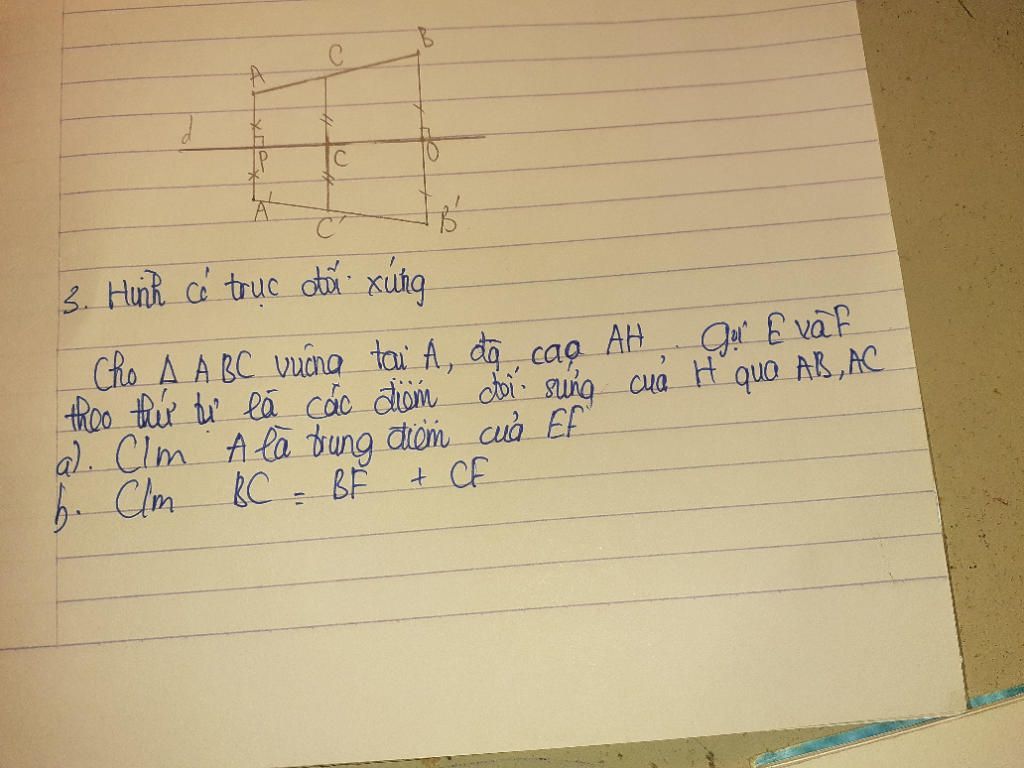 B
C
A
d
P
C
O
A'
C'
B'
3. Hình có trục đối xứng
Cho Δ ABC vuông tai A, đg cao AH. Gọi E và F
theo thứ tự là các điểm đối sứng của H qua AB, AC
a). C/m A là trung điểm của EF
b. C/m BC = BF + CF